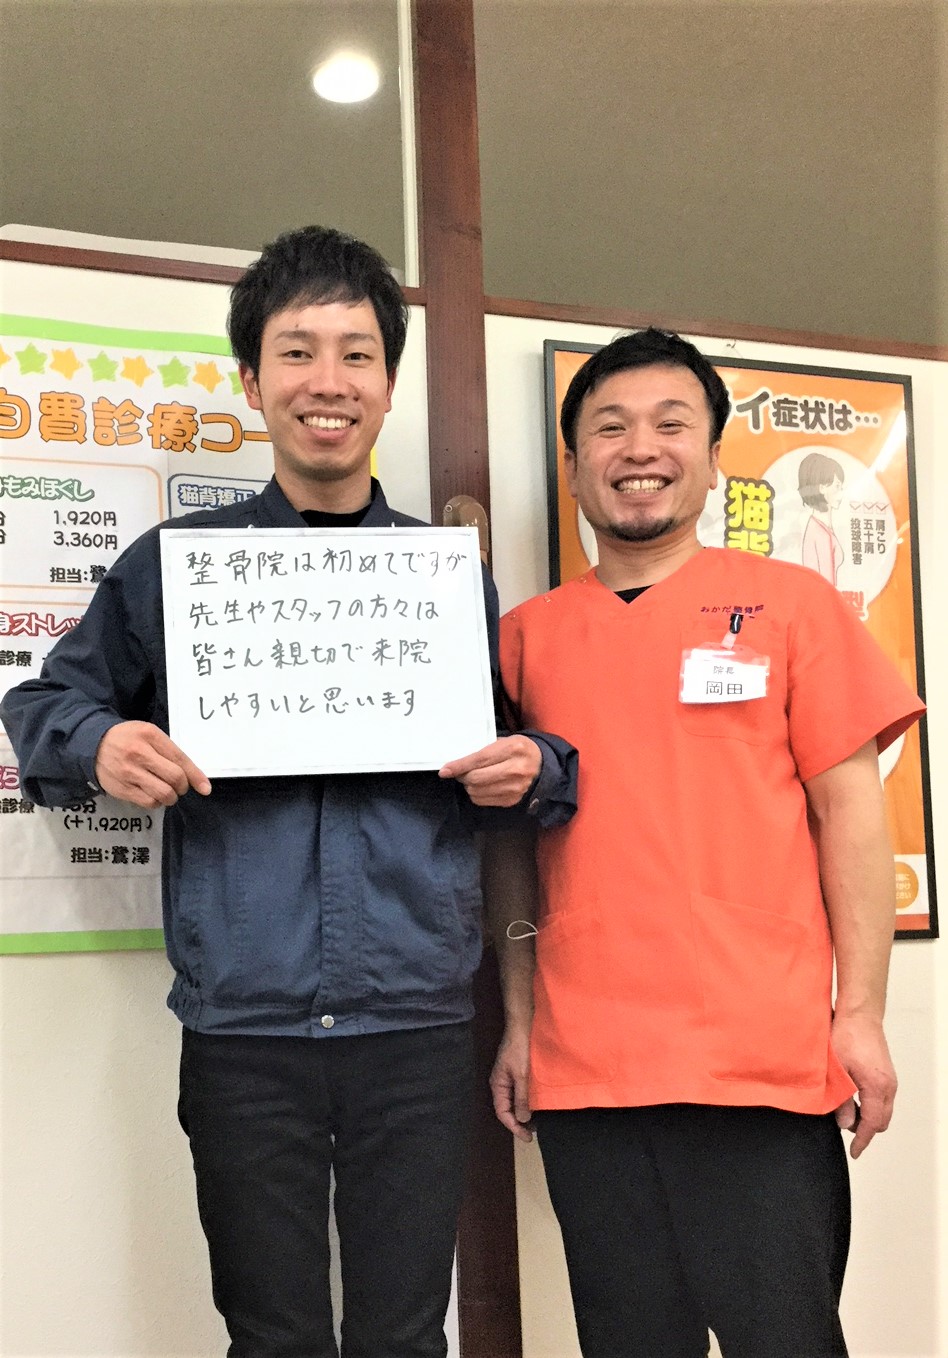 自費診療コー
もみほぐし
分 1,920円
分 3,360円
担当:鷺
猫背矯正
身ストレッ
診療
診療 +15分
(+1,920円)
担当:鷺澤
整骨院は初めてですが
先生やスタッフの方々は
皆さん親切で来院
しやすいと思います
イ症状は…
猫背
型
肩こり
五十肩
投球障害
おかだ整骨院
院長
岡田